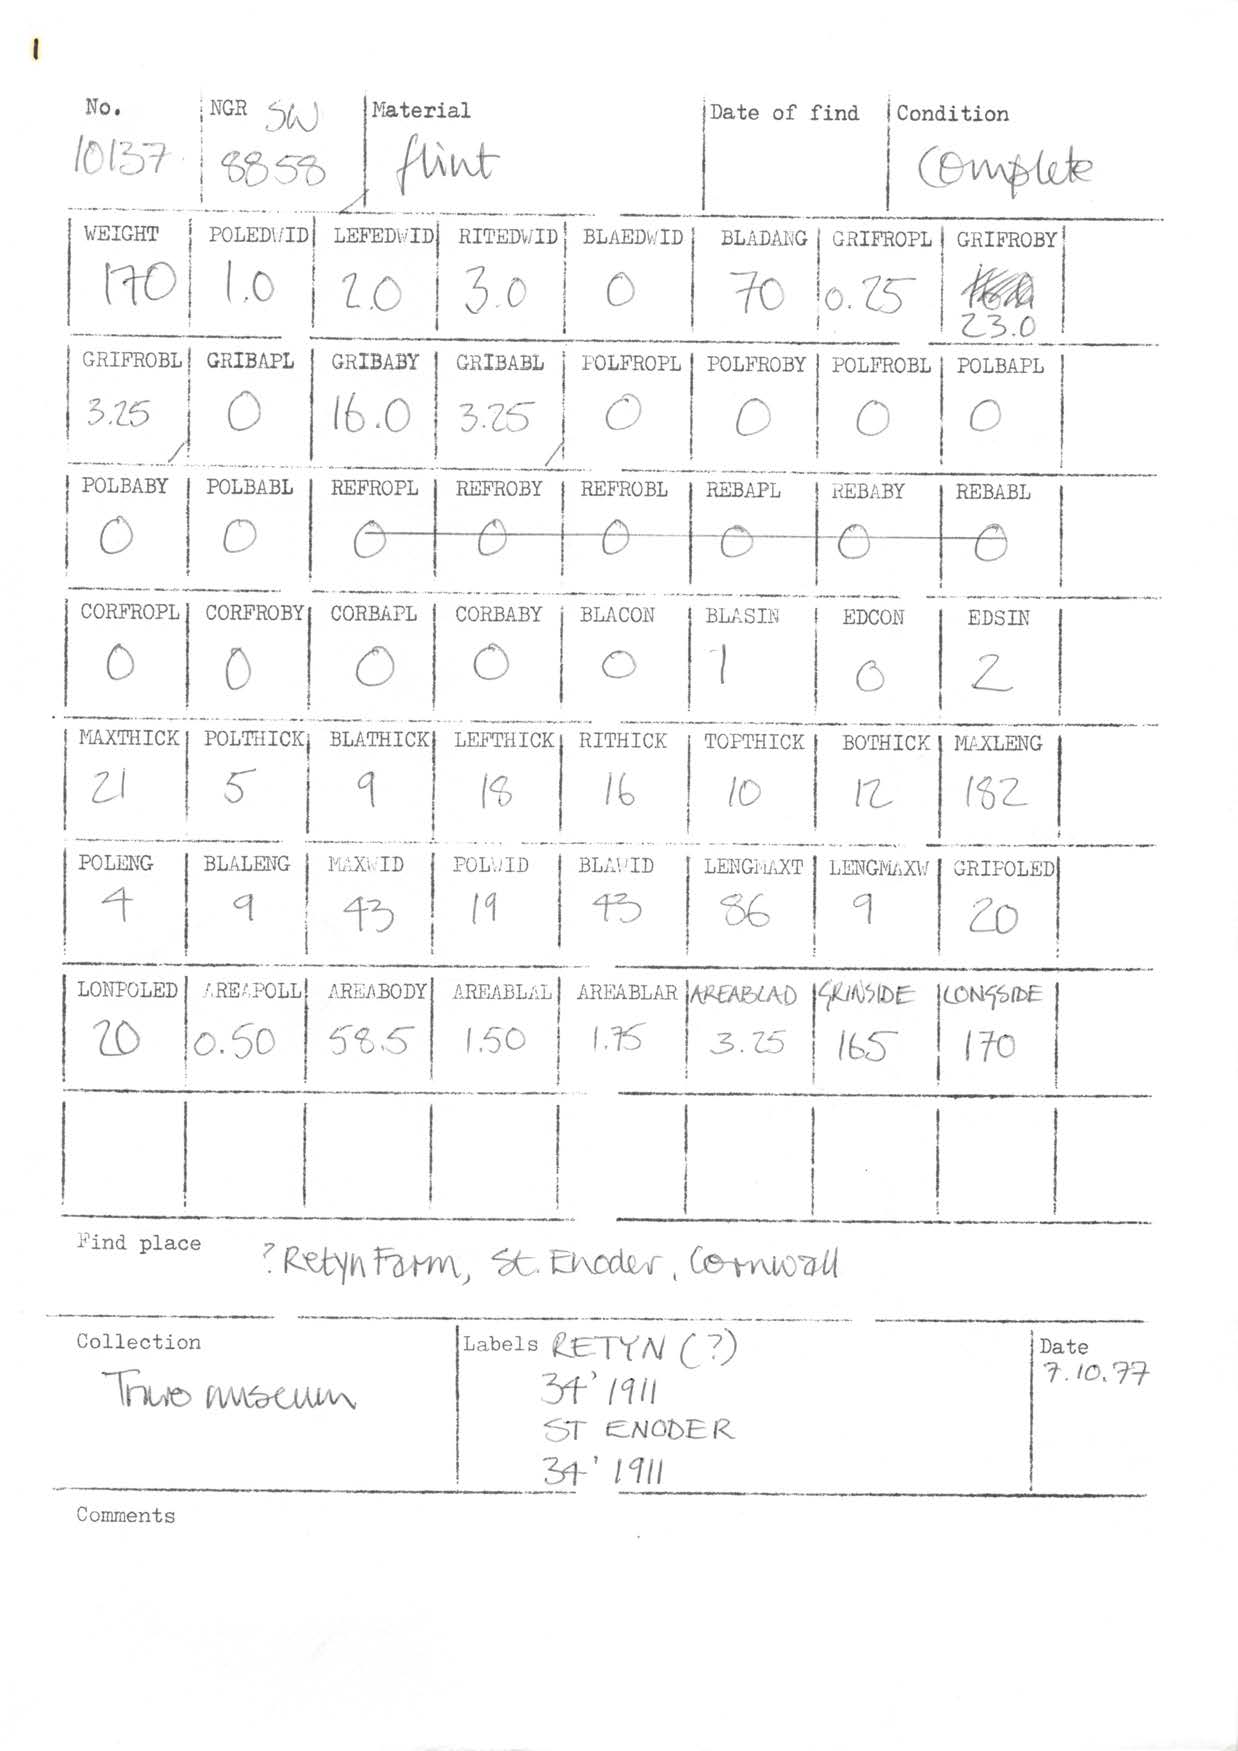 1
No. NGR SW Material Date of find Condition
10137 8858 flint Complete
WEIGHT POLEDWID LEFEDWID RITEDWID BLAEDWID BLADANG GRIFROPL GRIFROBY
170 1.0 2.0 3.0 0 70 0.25
23.0
GRIFROBL GRIBAPL GRIBABY GRIBABL POLFROPL POLFROBY POLFROBL POLBAPL
3.25 0 16.0 3.25 0 0 0 0
POLBABY POLBABL REFROPL REFROBY REFROBL REBAPL REBABY REBABL
0 0 0 0 0 0 0 0
CORFROPL CORFROBY CORBAPL CORBABY BLACON BLASIN EDCON EDSIN
0 0 0 0 0 1 0 2
MAXTHICK POLTHICK BLATHICK LEFTHICK RITHICK TOPTHICK BOTHICK MAXLENG
21 5 9 18 16 10 12 182
POLENG BLALENG MAXWID POLWID BLAWID LENGMAXT LENGMAXW GRIPOLED
4 9 43 19 43 86 9 20
LONPOLED AREAPOLL AREABODY AREABLAL AREABLAR AREABLAD GRINSIDE LONGSIDE
20 0.50 58.5 1.50 1.75 3.25 165 170
Find place ? Retyn Farm, St. Enoder, Cornwall
Collection Labels RETYN (?) Date
Truro museum 34' 1911 7.10.77
ST ENODER
34' 1911
Comments